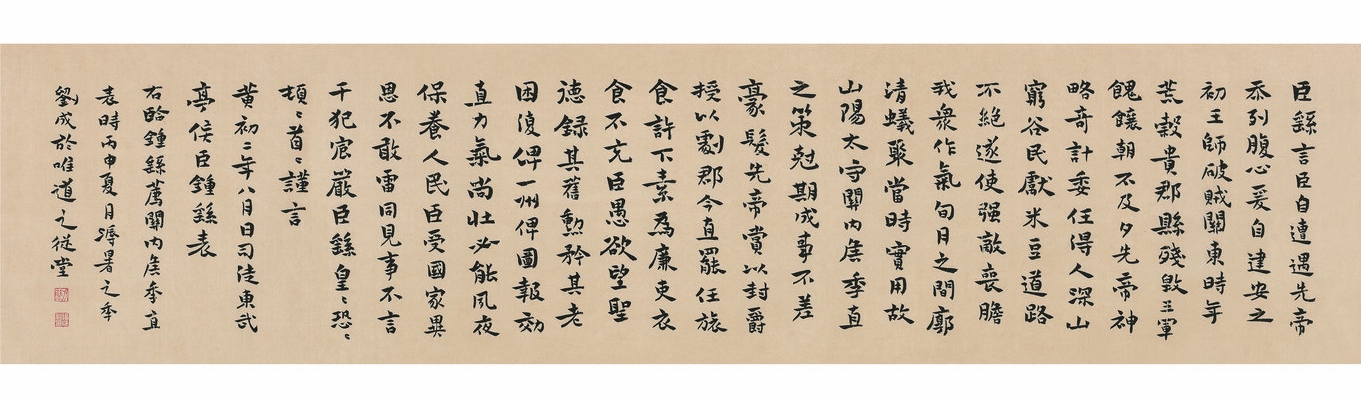 臣繇言臣自遭遇先帝
忝列腹心爰自建安之
初王師破賊關東時年
荒穀貴郡縣殘毀三軍
餽饟朝不及夕先帝神
略奇計委任得人深山
窮谷民獻米豆道路
不絕遂使强敵喪膽
我衆作氣旬月之間廓
清蟻聚當時實用故
山陽太守關內侯季直
之策尅期成事不差
豪髮先帝賞以封爵
授以劇郡今直罷任旅
食許下素為廉吏衣
食不充臣愚欲望聖
德錄其舊勲矜其老
困復俾一州俾圖報効
直力氣尚壯必能夙夜
保養人民臣受國家異
恩不敢雷同見事不言
干犯宸嚴臣繇皇〻恐〻
頓〻首〻謹言
黃初二年八月日司徒東武
亭侯臣鍾繇表
右臨鍾繇薦關內侯季直
表時丙申夏月溽暑之季
劉成於唯道之從堂